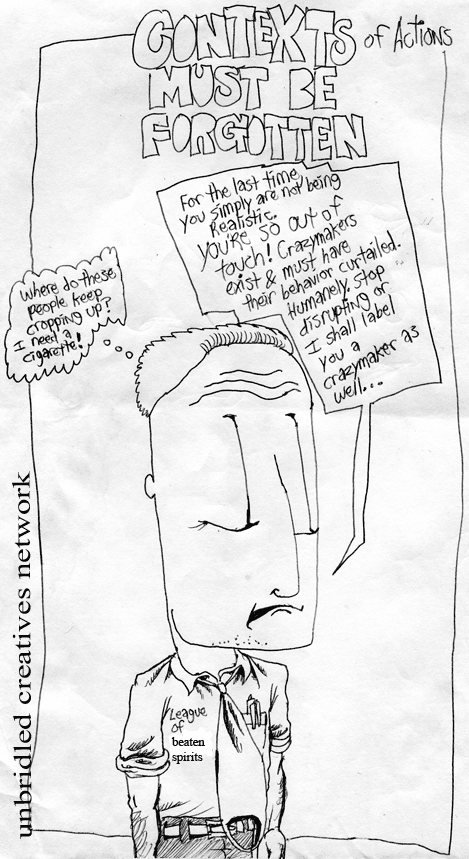 CONTEXTS of Actions
MUST BE
FORGOTTEN
For the last time,
you simply are not being
Realistic.
you're so out of
touch! Crazymakers
exist & must have
their behavior curtailed.
Humanely. Stop
disrupting or
I shall label
you a
crazymaker as
well...
Where do these
people keep
cropping up?
I need a
cigarette!
League
of
beaten
spirits
unbridled creatives network